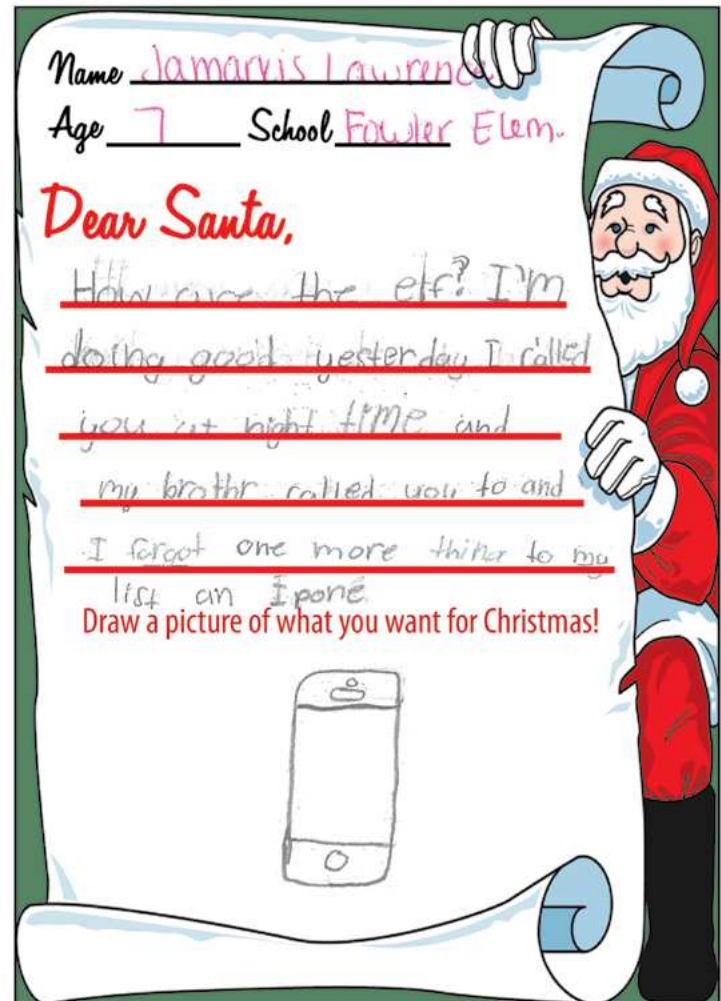 Name Jamarvis Lawrence
Age 7 School Fowler Elem.
Dear Santa,
How are the elf? I'm
doing good yesterday I called
you at night time and
my brothr called you to and
I forgot one more thing to my
list an Ipone
Draw a picture of what you want for Christmas!